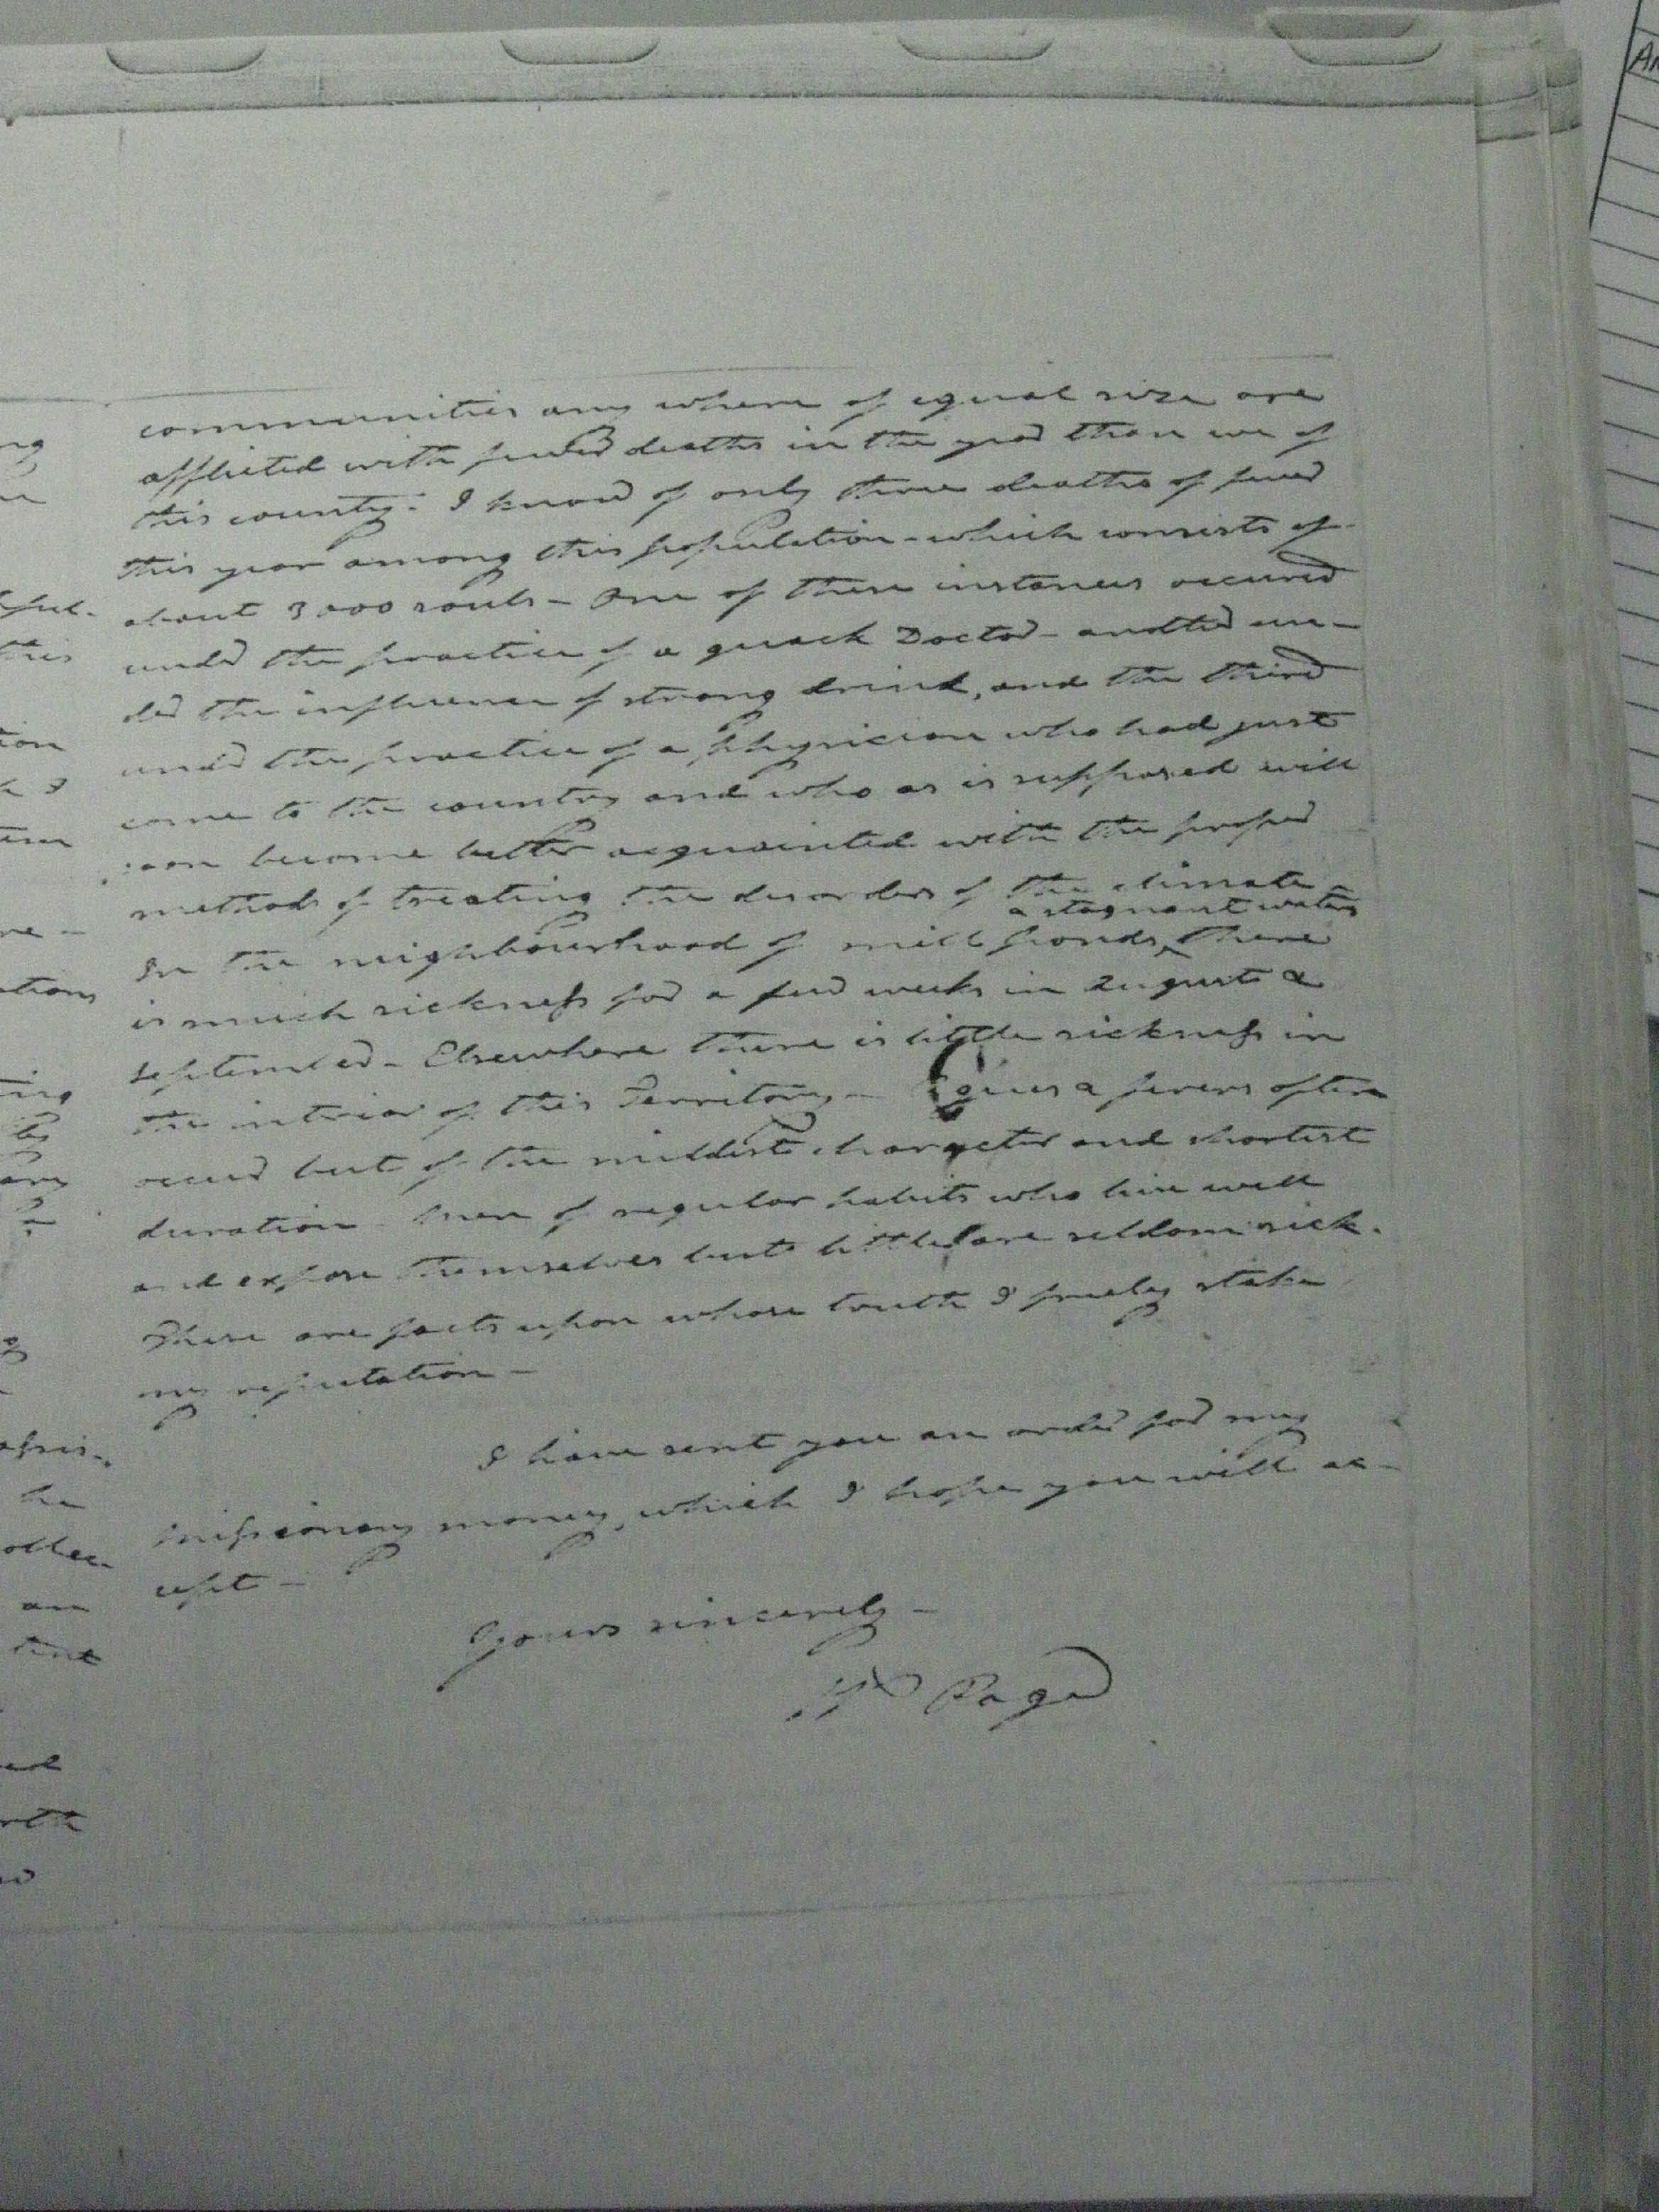 communities any where of equal size are
afflicted with fewer deaths in the year than we of
this county. I know of only three deaths of fever
this year among this population - which consists of
about 3000 souls - One of these instances occured
under the practice of a quack Doctor - another un-
der the influence of strong drink, and the third
under the practice of a physician who had just
come to the country and who as is supposed will
soon become better acquainted with the proper
methods of treating the disorders of the climate -
& stagnant waters
In the neighbourhood of mill ponds, there
is much sickness for a few weeks in August &
September - Elsewhere there is little sickness in
the interior of this Territory - Agues & fevers often
occur but of the mildest character and shortest
duration - Men of regular habits who live well
and expose themselves but little are seldom sick.
These are facts upon whose truth I freely stake
my reputation -
I have sent you an order for my
missionary money, which I hope you will ac-
cept -
Yours sincerely -
Wm Page